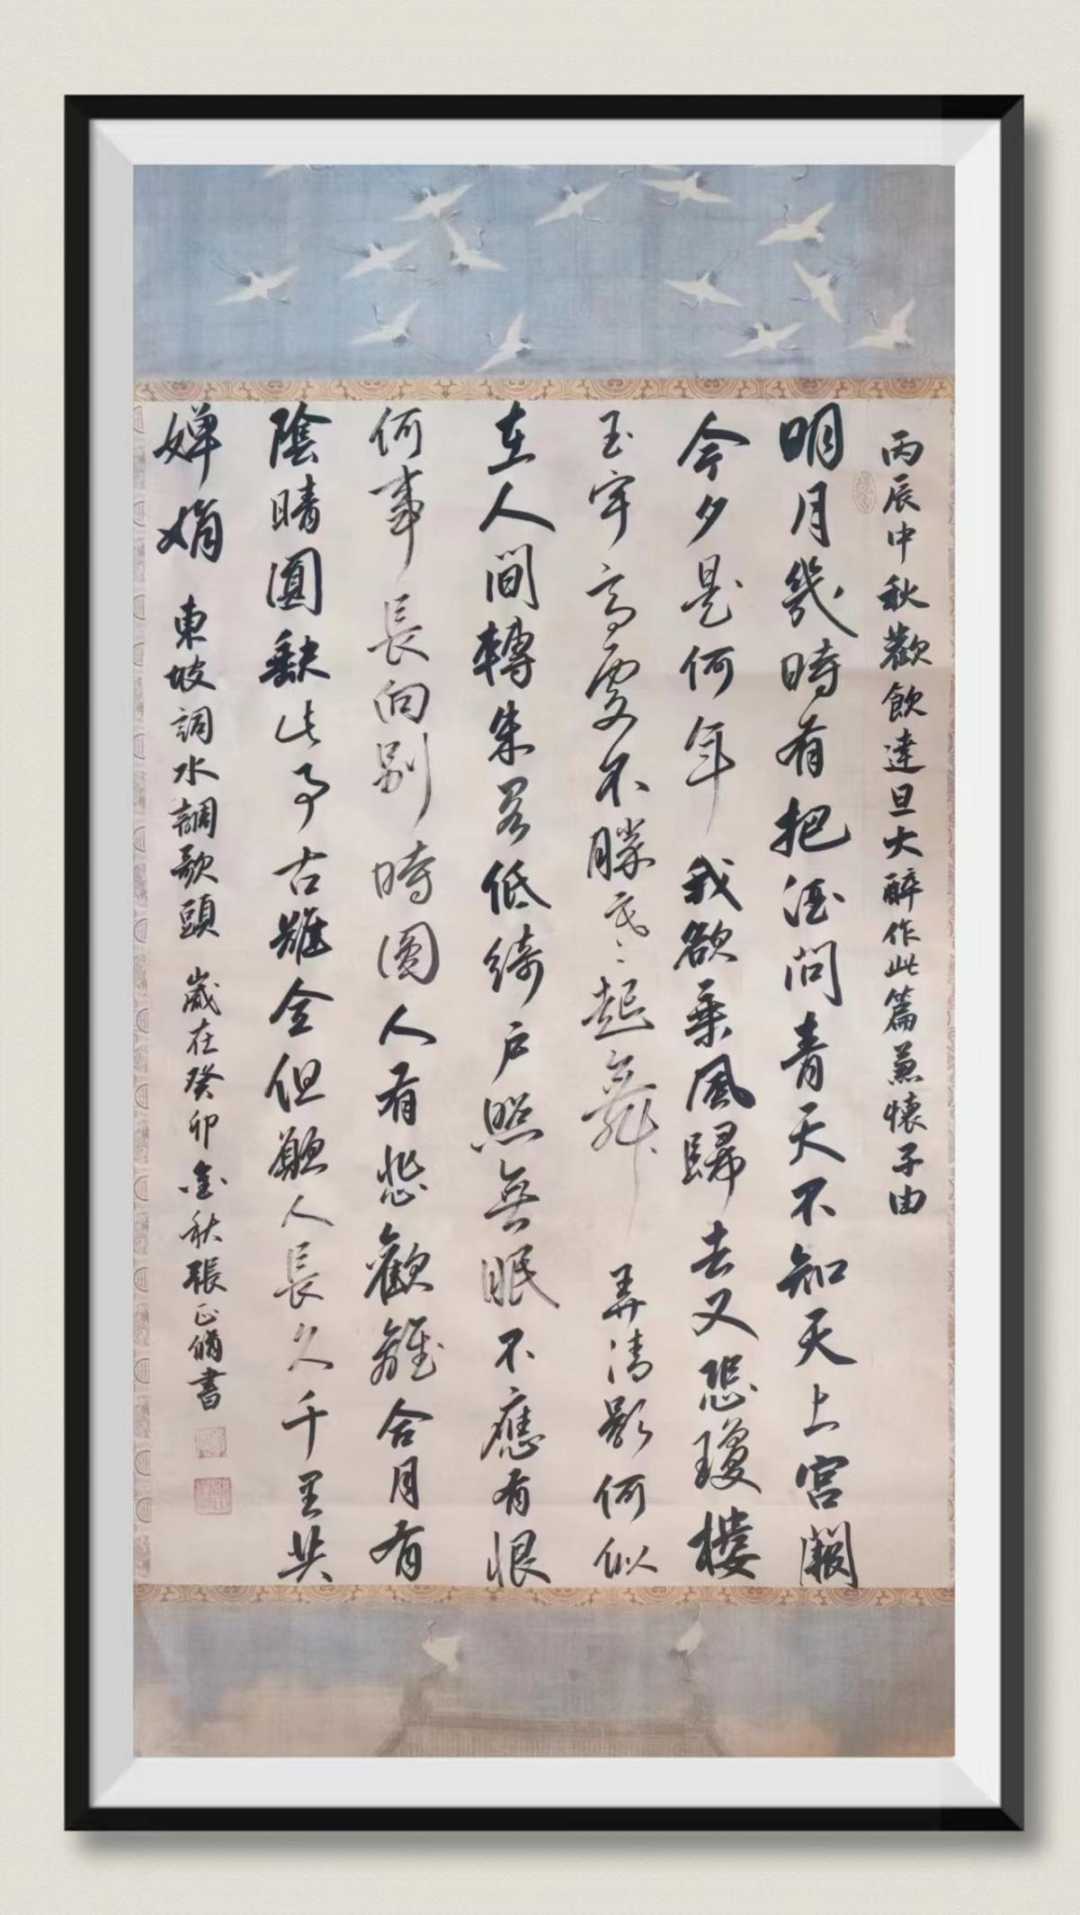 丙辰中秋歡飲達旦大醉作此篇兼懷子由
明月幾時有把酒問青天不知天上宮闕
今夕是何年我欲乘風歸去又恐瓊樓
玉宇高處不勝寒起舞弄清影何似
在人間轉朱閣低綺戶照無眠不應有恨
何事長向別時圓人有悲歡離合月有
陰晴圓缺此事古難全但願人長久千里共
嬋娟 東坡詞水調歌頭 歲在癸卯金秋張正書